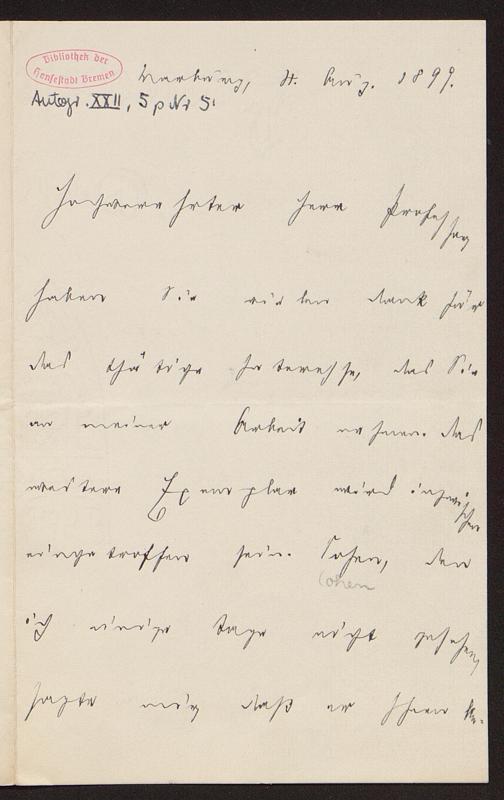 Bibliothek der
Hansestadt Bremen
Marburg, 4. Aug. 1899.
Autogr. XXII, 5 p Nr 5
Hochverehrter Herr Professor
haben Sie vielen dank für
das thätige Interesse, das Sie
an meiner Arbeit nehmen. das
weitere Exemplar wird inzwischen
eingetroffen sein. Cohen, den
Cohen
ich einige tage nicht gesehen,
sagte mir, daß er Ihnen